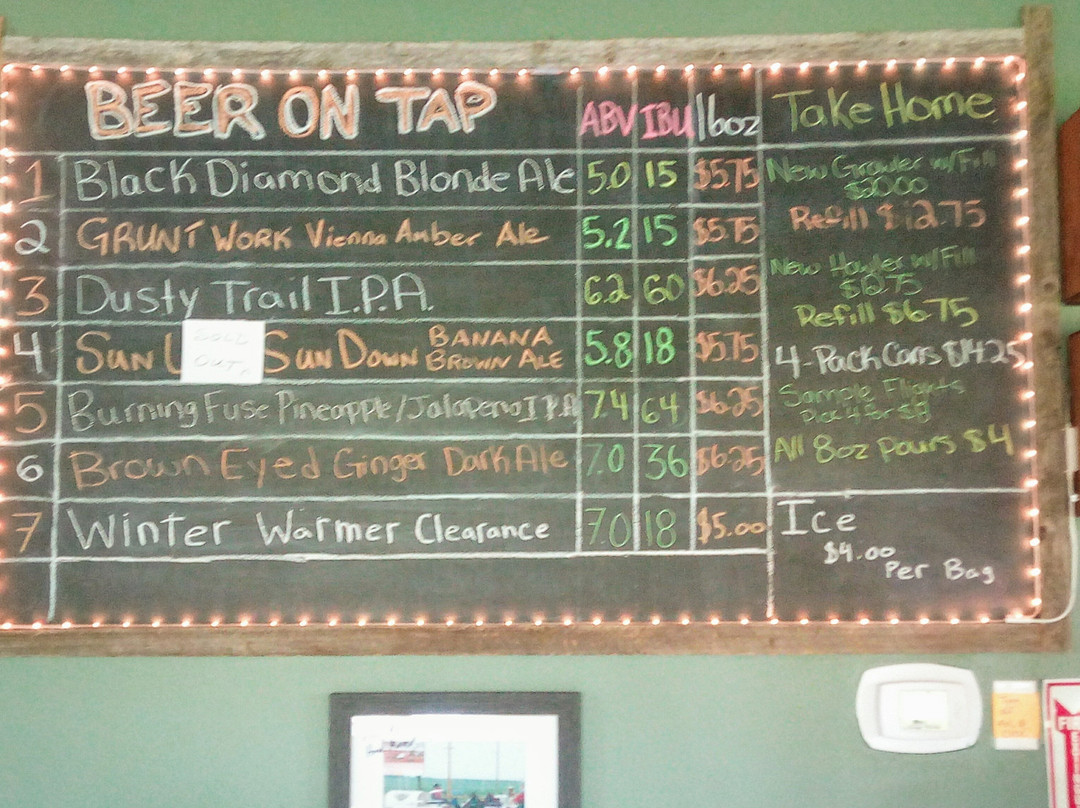 BEER ON TAP ABV IBU 16oz
1 Black Diamond Blonde Ale 5.0 15 $5.75
2 GRUNT WORK Vienna Amber Ale 5.2 15 $5.75
3 Dusty Trail I.P.A. 6.2 60 $6.25
4 SUN U SUN DOWN BANANA BROWN ALE 5.8 18 $5.75
SOLD
OUT
5 Burning Fuse Pineapple/Jalapeno I.P.A 7.4 64 $6.25
6 Brown Eyed Ginger Dark Ale 7.0 36 $6.25
7 Winter Warmer Clearance 7.0 18 $5.00
Take Home
New Growler w/Fill
$20.00
Refill $12.75
New Howler w/Fill
Refill $6.75
4-Pack Cans $14.25
Sample Flights
Pick 4 for $8
All 8oz pours $4
Ice
$4.00
Per Bag